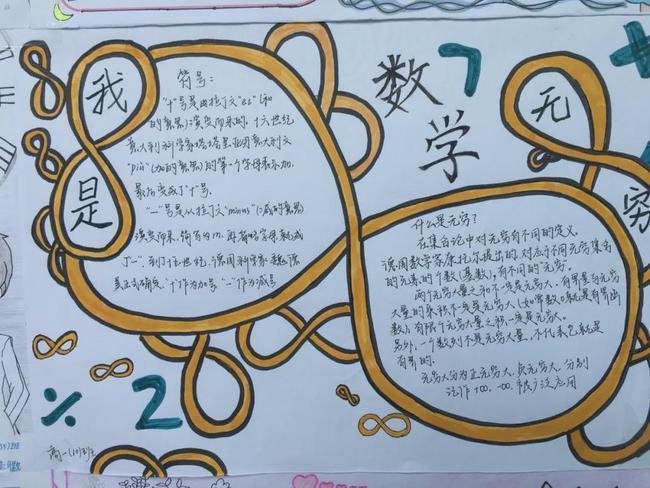 我
是
数
学
无
穷
7
符号：
"十"号是由拉丁文"et"(和
的意思)演变而来的。十六世纪
意大利科学家塔塔里亚用意大利文
"più"(加的意思)的第一个字母表示加,
最后变成了"十"号。
"一"号是从拉丁文"minus"(减的意思)
演变而来,简写为m,再省略字母就成
了"一"。到了十五世纪,德国科学家魏德
美正式确定:"十"作为加号"一"作为减号
什么是无穷?
在集合论中对无穷有不同的定义。
德国数学家康托尔提出的,对应于不同无穷集合
的元素的个数(基数),有不同的"无穷"。
两个无穷大量之和不一定是无穷大,有界量与无穷
大量的乘积不一定是无穷大(如常数0就是有界函
数),有限个无穷大量之积一定是无穷大。
另外,一个数列不是无穷大量,不代表它就是
有界的。
无穷大分为正无穷大,负无穷大,分别
记作+∞,-∞,
÷ 2
高一(10)班